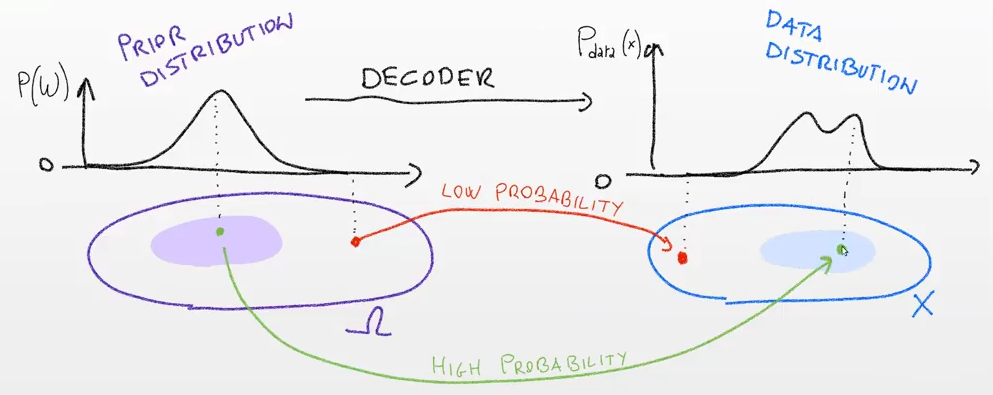 PRIOR
DISTRIBUTION
P(ω)
0
DECODER
Pdata(x)
DATA
DISTRIBUTION
0
LOW PROBABILITY
Ω
X
HIGH PROBABILITY